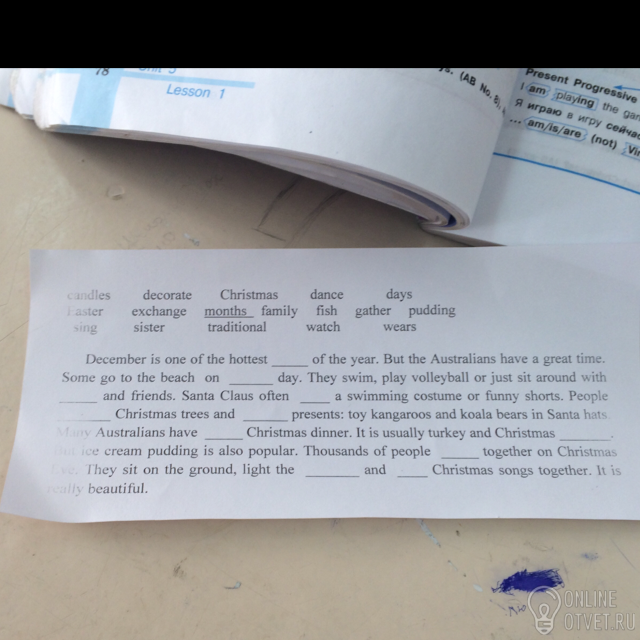 78 Unit 5
Lesson 1
ys. (AB No. 6),
Present Progressive
I am playing the gam
Я играю в игру сейчас
... am/is/are (not) Vin
candles decorate Christmas dance days
Easter exchange months family fish gather pudding
sing sister traditional watch wears
December is one of the hottest _____ of the year. But the Australians have a great time.
Some go to the beach on ______ day. They swim, play volleyball or just sit around with
_____ and friends. Santa Claus often ____ a swimming costume or funny shorts. People
_______ Christmas trees and ______ presents: toy kangaroos and koala bears in Santa hats.
Many Australians have _____ Christmas dinner. It is usually turkey and Christmas _______.
But ice cream pudding is also popular. Thousands of people _____ together on Christmas
Eve. They sit on the ground, light the _______ and ____ Christmas songs together. It is
really beautiful.
ONLINE
OTVET.RU